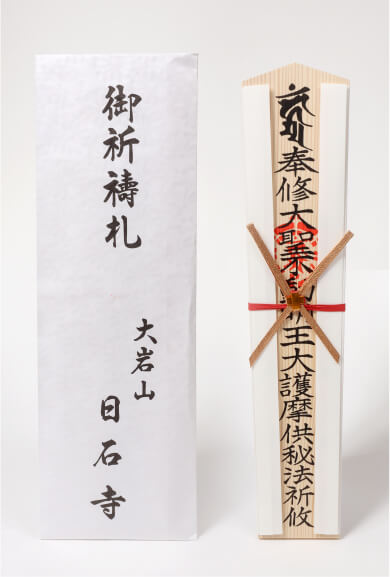 御祈禱札
大岩山
日石寺
奉修大聖乗動明王大護摩供秘法祈攸